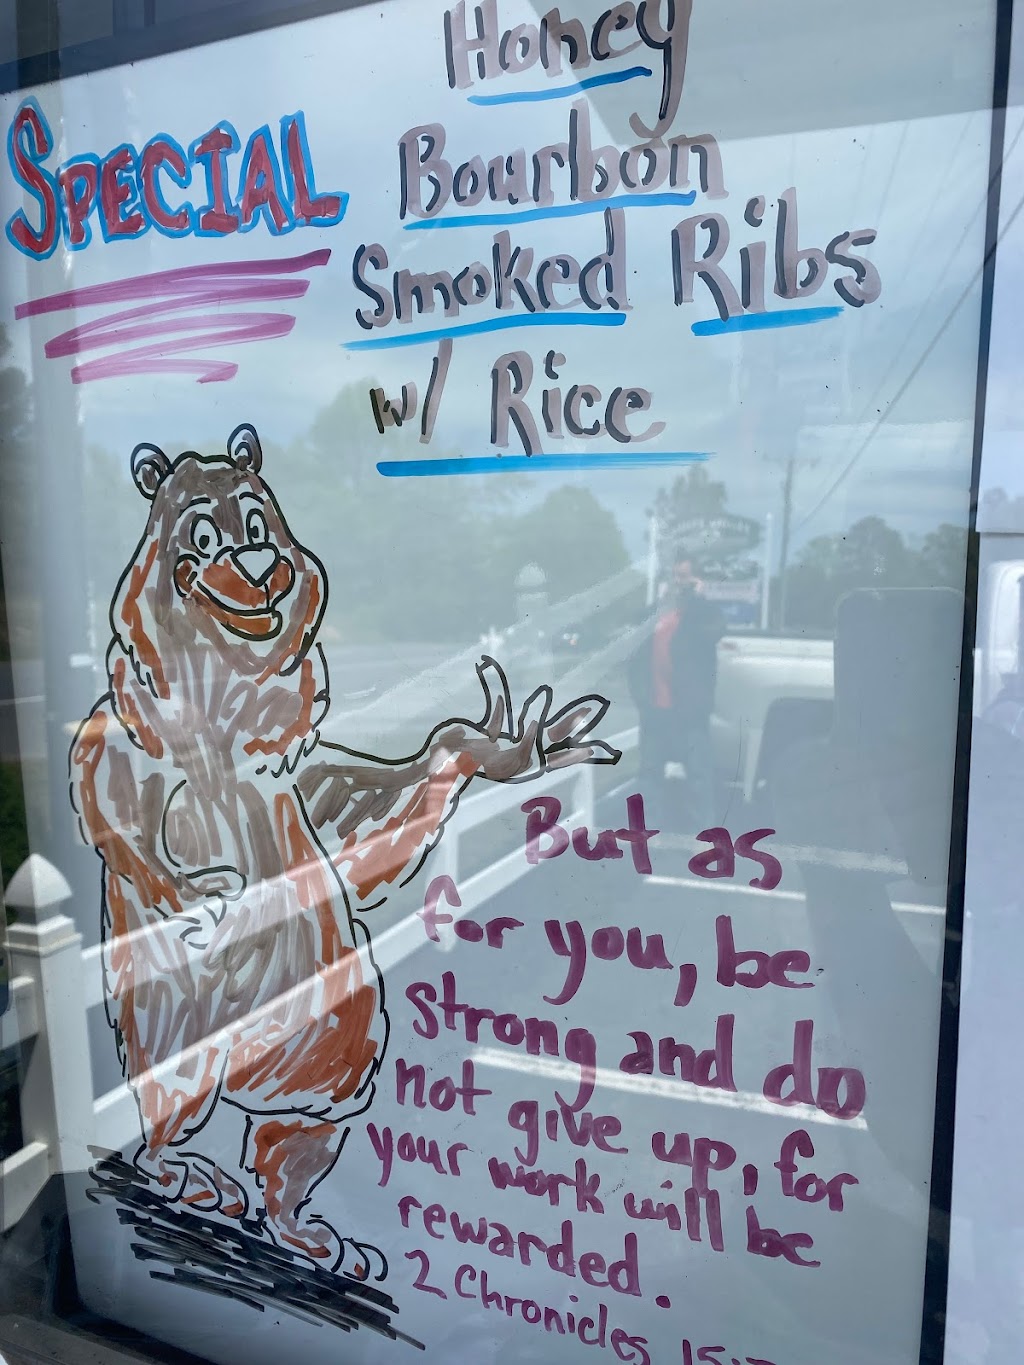 SPECIAL
Honey
Bourbon
Smoked Ribs
w/ Rice
But as
for you, be
strong and do
not give up, for
your work will be
rewarded.
2 Chronicles 15:7